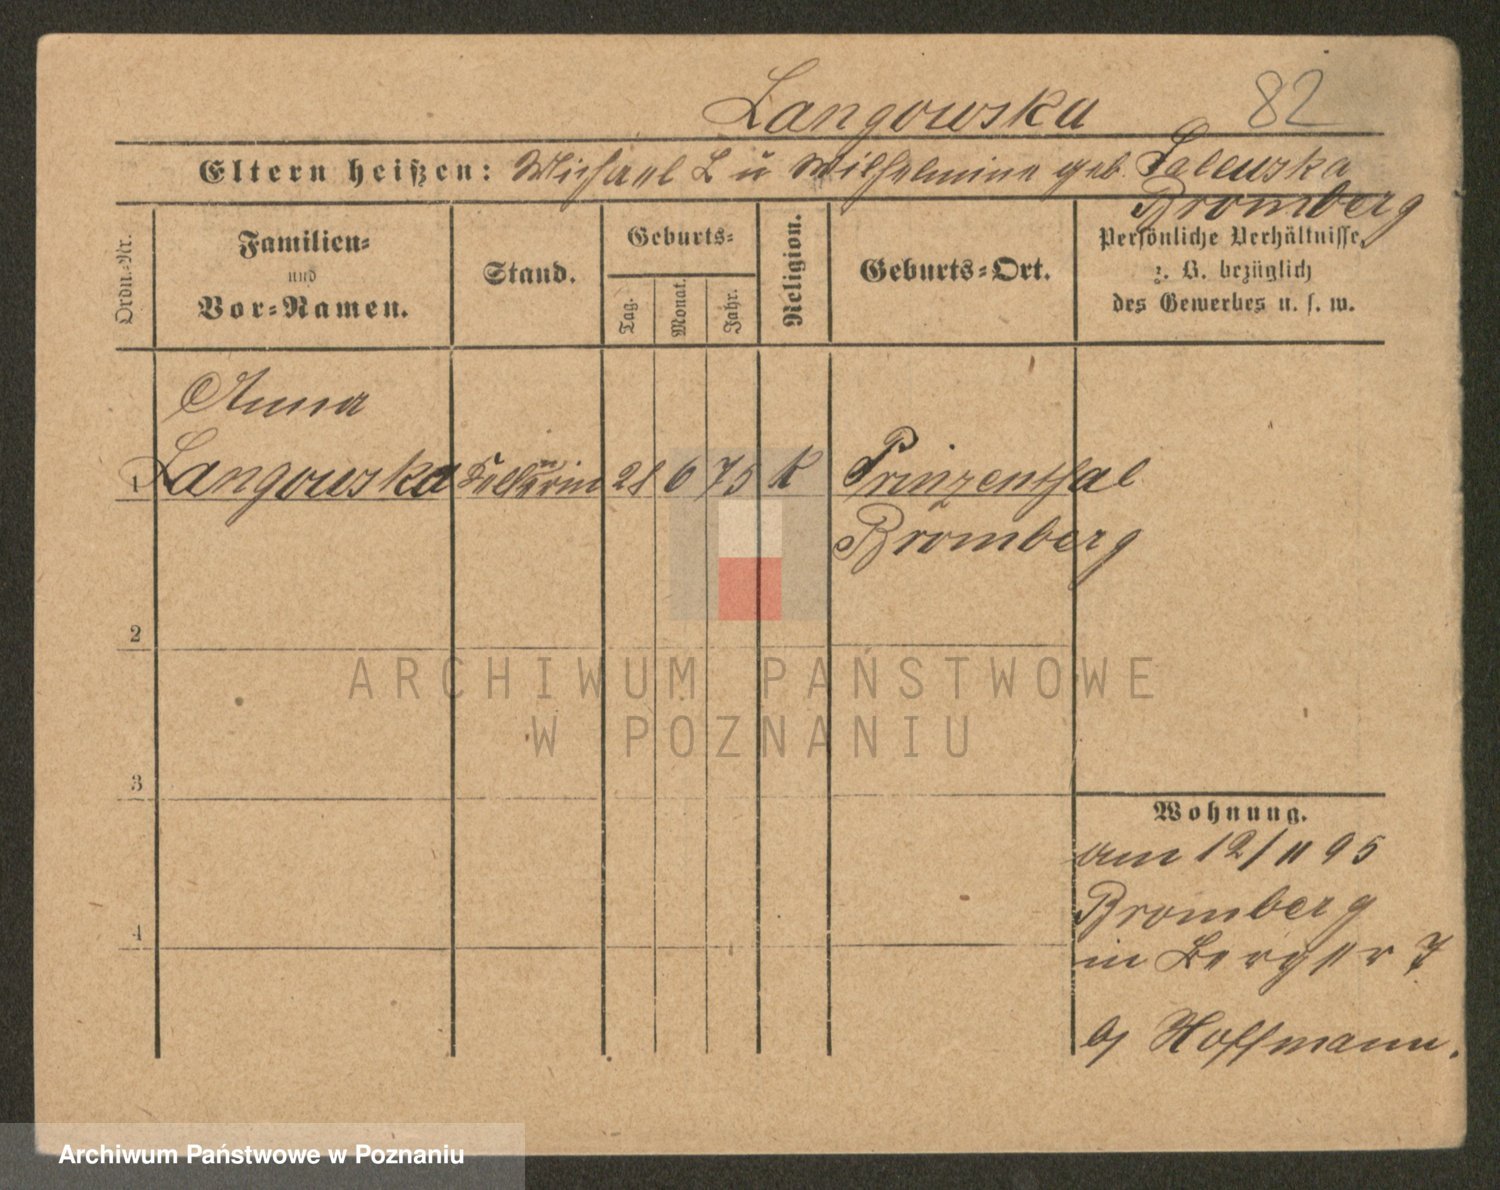 Langowska 82
Eltern heißen: Michael L u Wilhelmine geb. Salewska
Bromberg
Ordn.-Nr.
Familien-
und
Vor-Namen.
Stand.
Geburts-
Tag.
Monat.
Jahr.
Religion.
Geburts-Ort.
Persönliche Verhältnisse,
z. B. bezüglich
des Gewerbes u. s. w.
Anna
1 Langowska 6 75 K Prinzenthal
Bromberg
2
ARCHIWUM PAŃSTWOWE
W POZNANIU
3
Wohnung.
am 12/11 95
Bromberg
4
in Berger 7
bj Hoffmann.
Archiwum Państwowe w Poznaniu